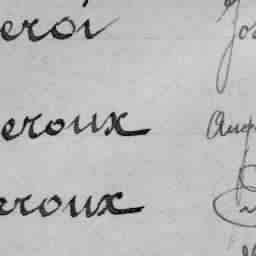 eroi Jos
eroux Aug
eroux